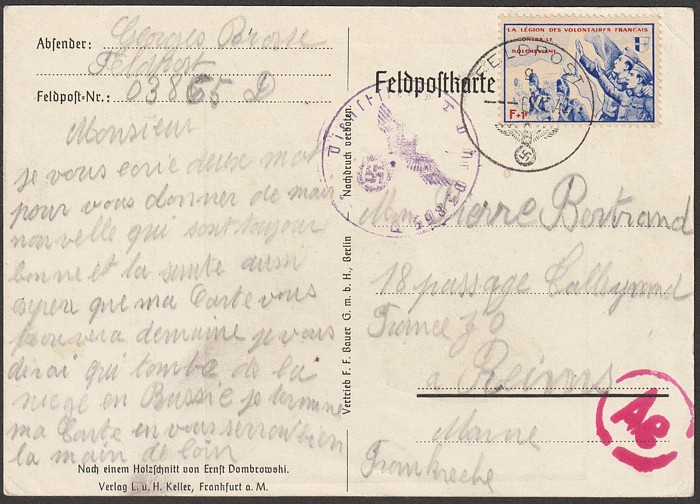 Absender: Georges Brosse
Feldpost
Feldpost-Nr.: 03865 D
Monsieur
je vous ecrie deux mot
pour vous donner de mais
nouvelle qui sont toujour
bonne et la sente aussi
espere que ma Carte vous
trouvera demaine je vous
dirai qui tombe de la
niege en Russie je termine
ma Carte en vous serront bien
la main de loin
Nach einem Holzschnitt von Ernst Dombrowski.
Verlag L. u. H. Keller, Frankfurt a. M.
Nachdruck verboten.
Vertrieb F. F. Bauer G. m. b. H., Berlin
Feldpostkarte
LA LÉGION DES VOLONTAIRES FRANÇAIS
CONTRE LE
BOLCHEVISME
F+
FELDPOST
03865
Pierre Bertrand
18 passage
France Z O
a Reims
Marne
Frankreche
Ae